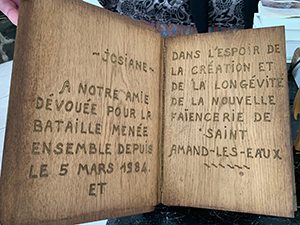 ~JOSIANE~
A NOTRE AMIE
DÉVOUÉE POUR LA
BATAILLE MENÉE
ENSEMBLE DEPUIS
LE 5 MARS 1984.
ET
DANS L'ESPOIR DE
LA CRÉATION ET
DE LA LONGÉVITÉ
DE LA NOUVELLE
FAÏENCERIE DE
SAINT
AMAND-LES-EAUX